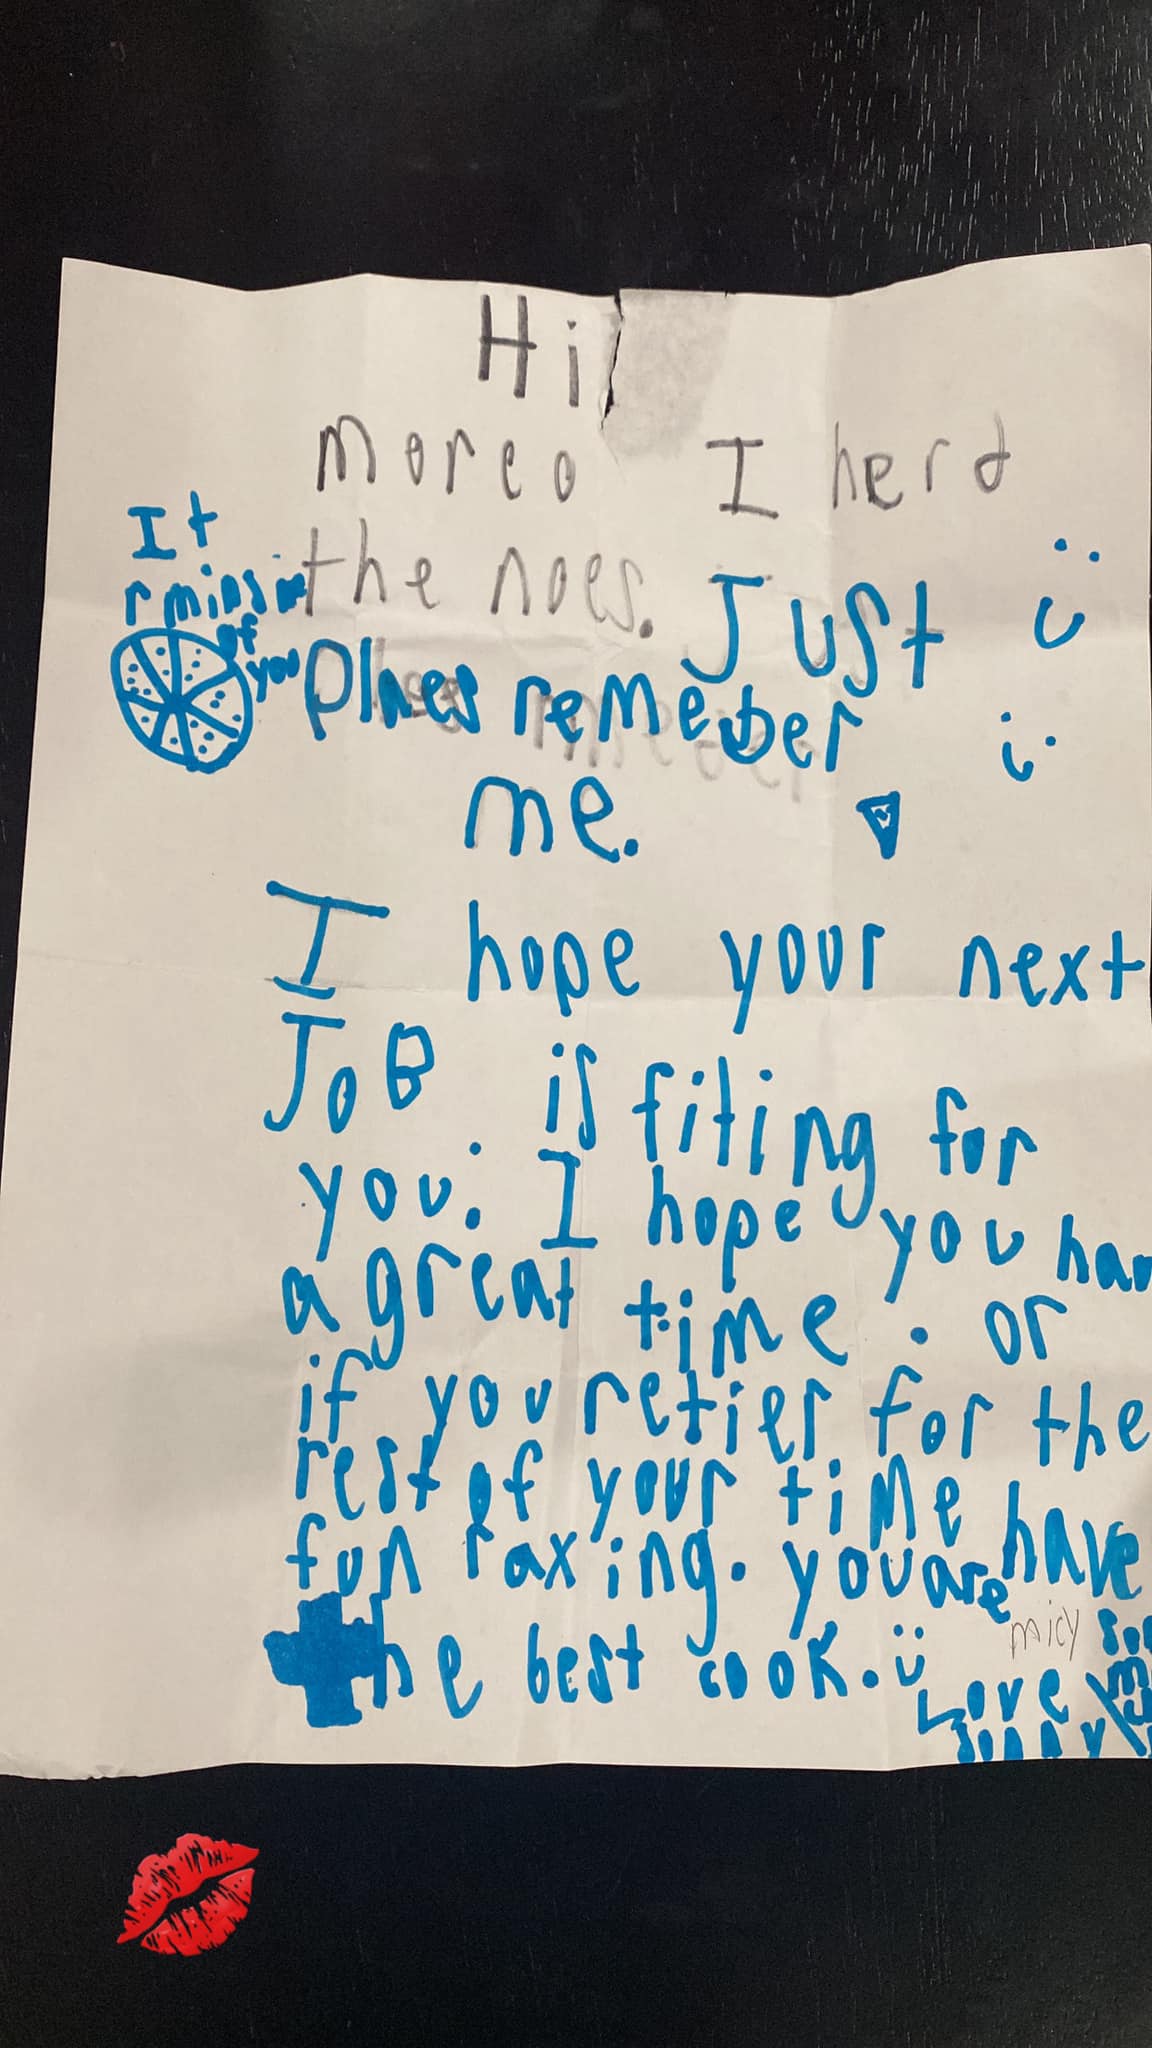 Hi
moreo I herd
the noes. Just
plaes remeber
me.
It
rminds me
of
you
I hope your next
JoB is fiting for
you. I hope you hav
a great time. or
if you retier for the
rest of your time have
fun raxing. you are
the best cook.
micy
Love